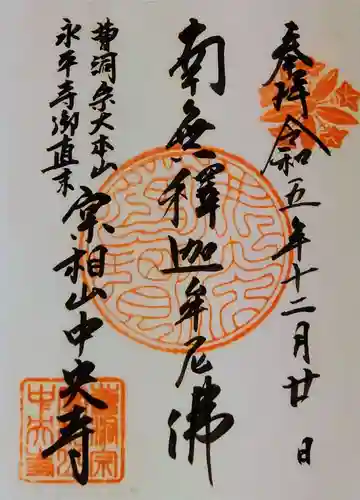 奉拝 令和五年十二月廿日
南無釋迦牟尼佛
曹洞宗大本山
永平寺御直末
実相山中央寺